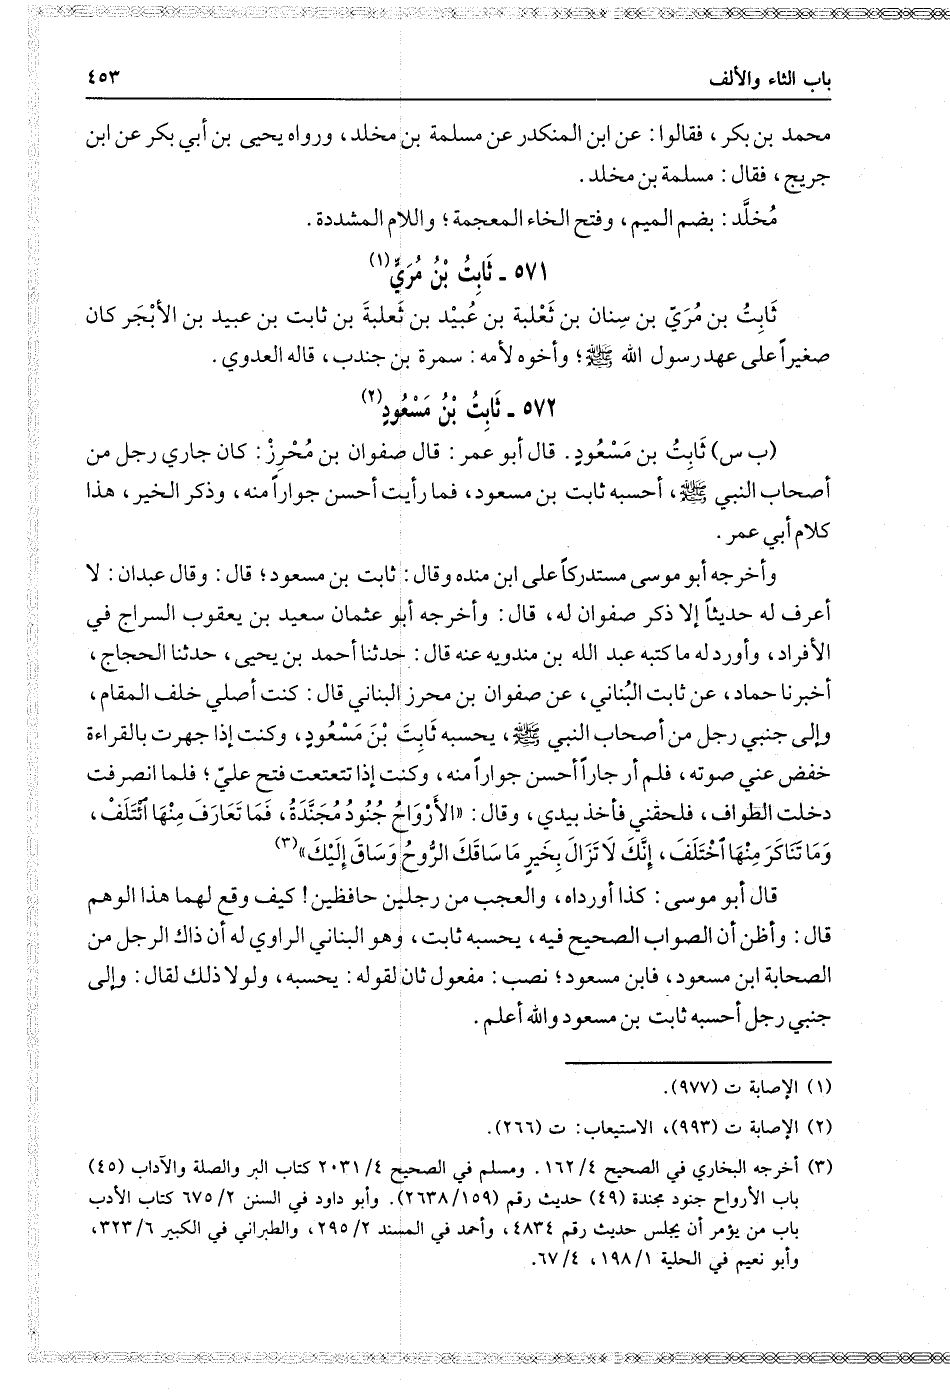 باب الثاء والألف ٤٥٣
محمد بن بكر، فقالوا: عن ابن المنكدر عن مسلمة بن مخلد، ورواه يحيى بن أبي بكر عن ابن
جريج، فقال: مسلمة بن مخلد.
مُخلَّد: بضم الميم، وفتح الخاء المعجمة؛ واللام المشددة.
٥٧١ - ثَابِتُ بْنُ مُرَيٍّ(١)
ثَابِتُ بن مُرَيّ بن سِنان بن ثَعْلبة بن عُبيْد بن ثَعلبةَ بن ثابت بن عبيد بن الأبْجَر كان
صغيراً على عهد رسول الله ﷺ؛ وأخوه لأمه: سمرة بن جندب، قاله العدوي.
٥٧٢ - ثَابِتُ بْنُ مَسْعُودٍ(٢)
(ب س) ثَابِتُ بن مَسْعُودٍ. قال أبو عمر: قال صفوان بن مُحْرِزْ: كان جاري رجل من
أصحاب النبي ﷺ، أحسبه ثابت بن مسعود، فما رأيت أحسن جواراً منه، وذكر الخير، هذا
كلام أبي عمر.
وأخرجه أبو موسى مستدركاً على ابن منده وقال: ثابت بن مسعود؛ قال: وقال عبدان: لا
أعرف له حديثاً إلا ذكر صفوان له، قال: وأخرجه أبو عثمان سعيد بن يعقوب السراج في
الأفراد، وأورد له ما كتبه عبد الله بن مندويه عنه قال: حدثنا أحمد بن يحيى، حدثنا الحجاج،
أخبرنا حماد، عن ثابت البُناني، عن صفوان بن محرز البناني قال: كنت أصلي خلف المقام،
وإلى جنبي رجل من أصحاب النبي ﷺ، يحسبه ثَابِتَ بْنَ مَسْعُودٍ، وكنت إذا جهرت بالقراءة
خفض عني صوته، فلم أر جاراً أحسن جواراً منه، وكنت إذا تتعتعت فتح عليّ؛ فلما انصرفت
دخلت الطواف، فلحقني فأخذ بيدي، وقال: «الأَرْوَاحُ جُنُودٌ مُجَنَّدَةٌ، فَمَا تَعَارَفَ مِنْهَا ٱئْتَلَفْ،
وَمَا تَنَاكَرَ مِنْهَا ٱخْتَلَفَ، إِنَّكَ لَا تَزَالَ بِخَيرٍ مَا سَاقَكَ الرُّوحُ وَسَاقَ إِلَيْكَ»(٣)
قال أبو موسى: كذا أورداه، والعجب من رجلين حافظين! كيف وقع لهما هذا الوهم
قال: وأظن أن الصواب الصحيح فيه، يحسبه ثابت، وهو البناني الراوي له أن ذاك الرجل من
الصحابة ابن مسعود، فابن مسعود؛ نصب: مفعول ثان لقوله: يحسبه، ولولا ذلك لقال: وإلى
جنبي رجل أحسبه ثابت بن مسعود والله أعلم.
(١) الإصابة ت (٩٧٧).
(٢) الإصابة ت (٩٩٣)، الاستيعاب: ت (٢٦٦).
(٣) أخرجه البخاري في الصحيح ٤/ ١٦٢. ومسلم في الصحيح ٤/ ٢٠٣١ كتاب البر والصلة والآداب (٤٥)
باب الأرواح جنود مجندة (٤٩) حديث رقم (١٥٩/ ٢٦٣٨). وأبو داود في السنن ٢/ ٦٧٥ كتاب الأدب
باب من يؤمر أن يجلس حديث رقم ٤٨٣٤، وأحمد في المسند ٢/ ٢٩٥، والطبراني في الكبير ٦/ ٣٢٣،
وأبو نعيم في الحلية ١/ ١٩٨، ٤/ ٦٧.